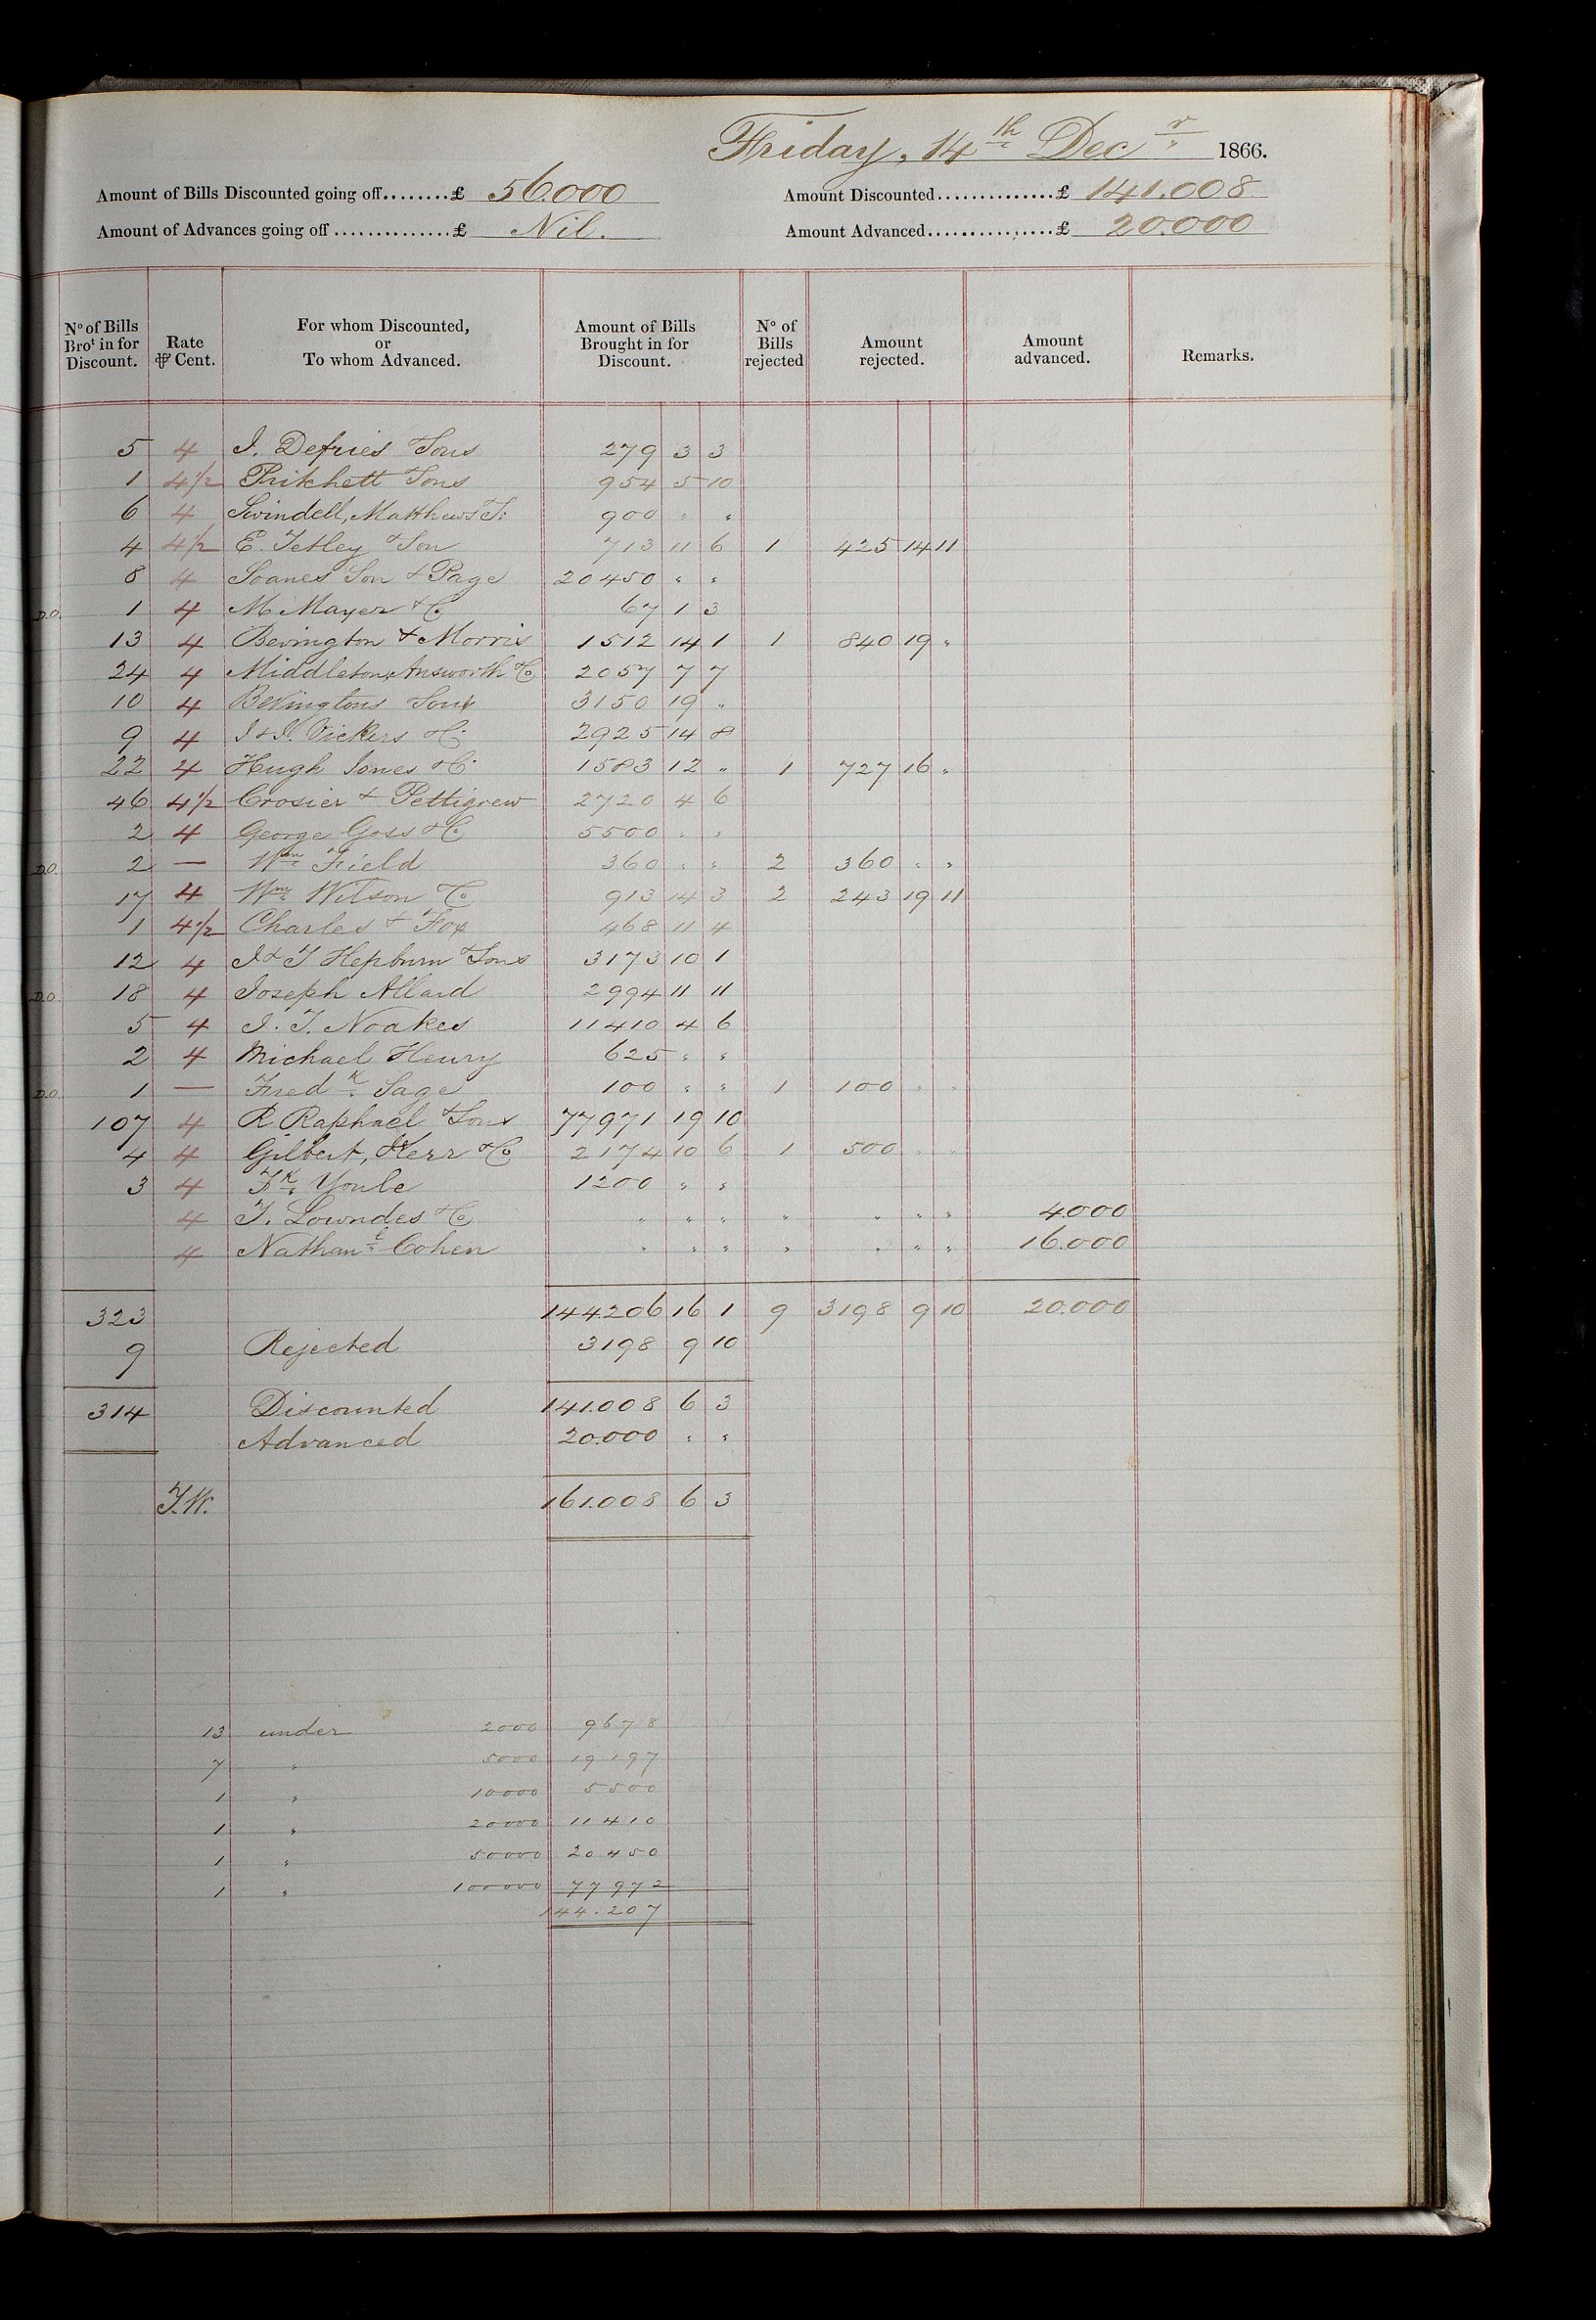 Friday, 14th Decr 1866.
Amount of Bills Discounted going off........£ 56.000 Amount Discounted..............£ 141.008
Amount of Advances going off..............£ Nil. Amount Advanced...............£ 20.000
No of Bills Brot in for Discount. Rate ⅌ Cent. For whom Discounted, or To whom Advanced. Amount of Bills Brought in for Discount. No of Bills rejected Amount rejected. Amount advanced. Remarks.
5 4 I. Defries & Sons 279 3 3
1 4½ Pritchett & Sons 954 5 10
6 4 Swindell, Matthews & 900 " "
4 4½ E. Tetley & Son 713 11 6 1 425 14 11
8 4 Soanes Son & Page 20450 " "
D.O. 1 4 M. Mayer & Co 67 1 3
13 4 Bevington & Morris 1512 14 1 1 840 19 "
24 4 Middleton, Answorth & Co 2057 7 7
10 4 Bevingtons & Sons 3150 19 "
9 4 I & I. Vickers & Co 2925 14 8
22 4 Hugh Jones & Co 1583 12 " 1 727 16 "
46 4½ Crosier & Pettigrew 2720 4 6
2 4 George Goss & Co 5500 " "
D.O. 2 — Wm Field 360 " " 2 360 " "
17 4 Wm Wilson & Co 913 14 3 2 243 19 11
1 4½ Charles & Fox 468 11 4
12 4 I & T Hepburn & Sons 3173 10 1
D.O. 18 4 Joseph Allard 2994 11 11
5 4 I. T. Noakes 11410 4 6
2 4 Michael Henry 625 " "
D.O. 1 — Fredk Sage 100 " " 1 100 " "
107 4 R Raphael & Sons 77971 19 10
4 4 Gilbert, Kerr & Co 2174 10 6 1 500 " "
3 4 Fk Youle 1200 " "
4 T. Lowndes & Co " " " " " " " 4000
4 Nathanl Cohen " " " " " " " 16.000
323 144.206 16 1 9 3198 9 10 20.000
9 Rejected 3198 9 10
314 Discounted 141.008 6 3
Advanced 20.000 " "
T.W. 161.008 6 3
13 under 2000 9678
7 " 5000 19197
1 " 10000 5500
1 " 20000 11410
1 " 50000 20450
1 " 100000 77972
144.207